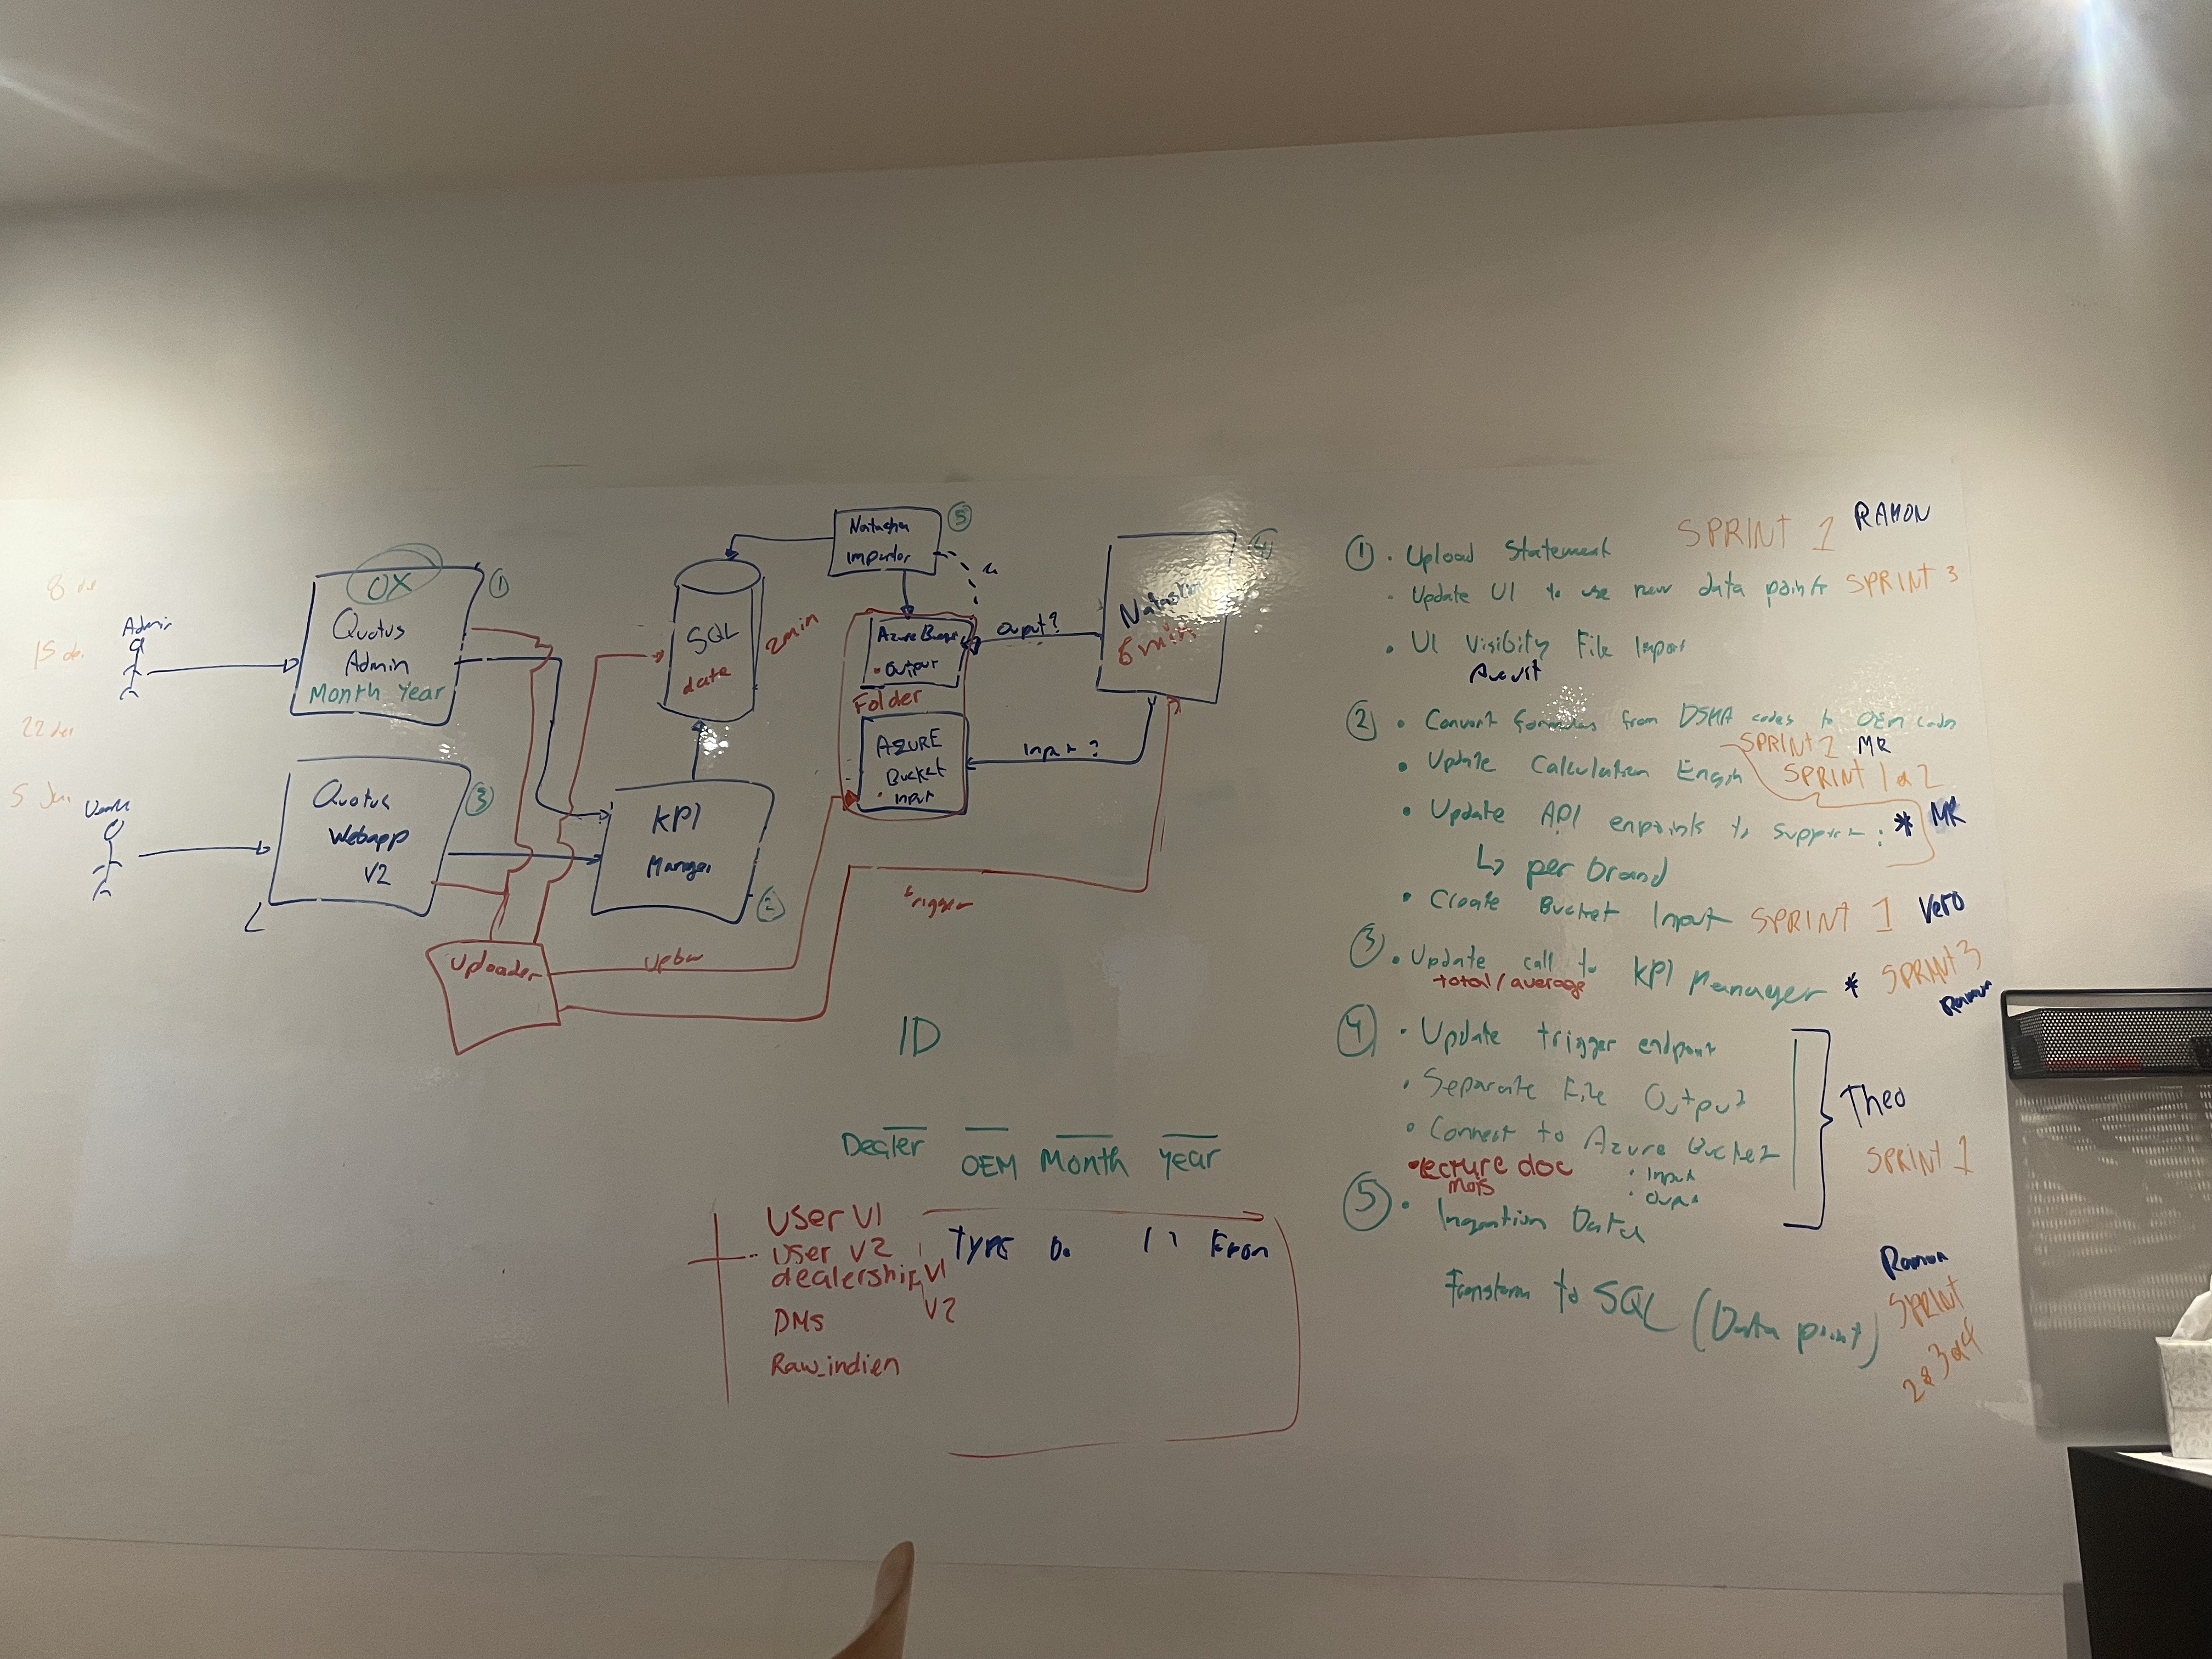 8 de
15 de.
22 der
5 Jan
Admin
OX
Quotus
Admin
Month Year
①
Quotus
Webapp
V2
③
SQL
date
2min
Natasha
importer
⑤
Azure
• output
Folder
AZURE
Bucket
• input
Ouput?
Input?
Natasha
6 min
④
KPI
Manger
②
Uploader
trigger
ID
Dealer OEM Month year
User V1
User V2
dealership V1
V2
DMS
Raw_indien
TYPE
SPRINT 1 RAMON
① • Upload Statement
- Update UI to use new data points SPRINT 3
• UI Visibity File Impor
② • Convert formulas from codes to OEM codes
SPRINT 2 MR
• Update Calculation Engin SPRINT 1 & 2
• Update API enpoints to support : * MR
↳ per brand
• Create Bucket Input SPRINT 1 Vero
③ • Update call to KPI Manager * SPRINT 3
total/average
Ramon
④ • Update trigger endpoint
• Separate File Output
• Connect to Azure Bucket
Theo
SPRINT 1
• lecture doc
mois
• Input
• Ouput
⑤ • Ingestion Data
Transform to SQL (Data point)
Ramon
SPRINT
2 & 3 & 4